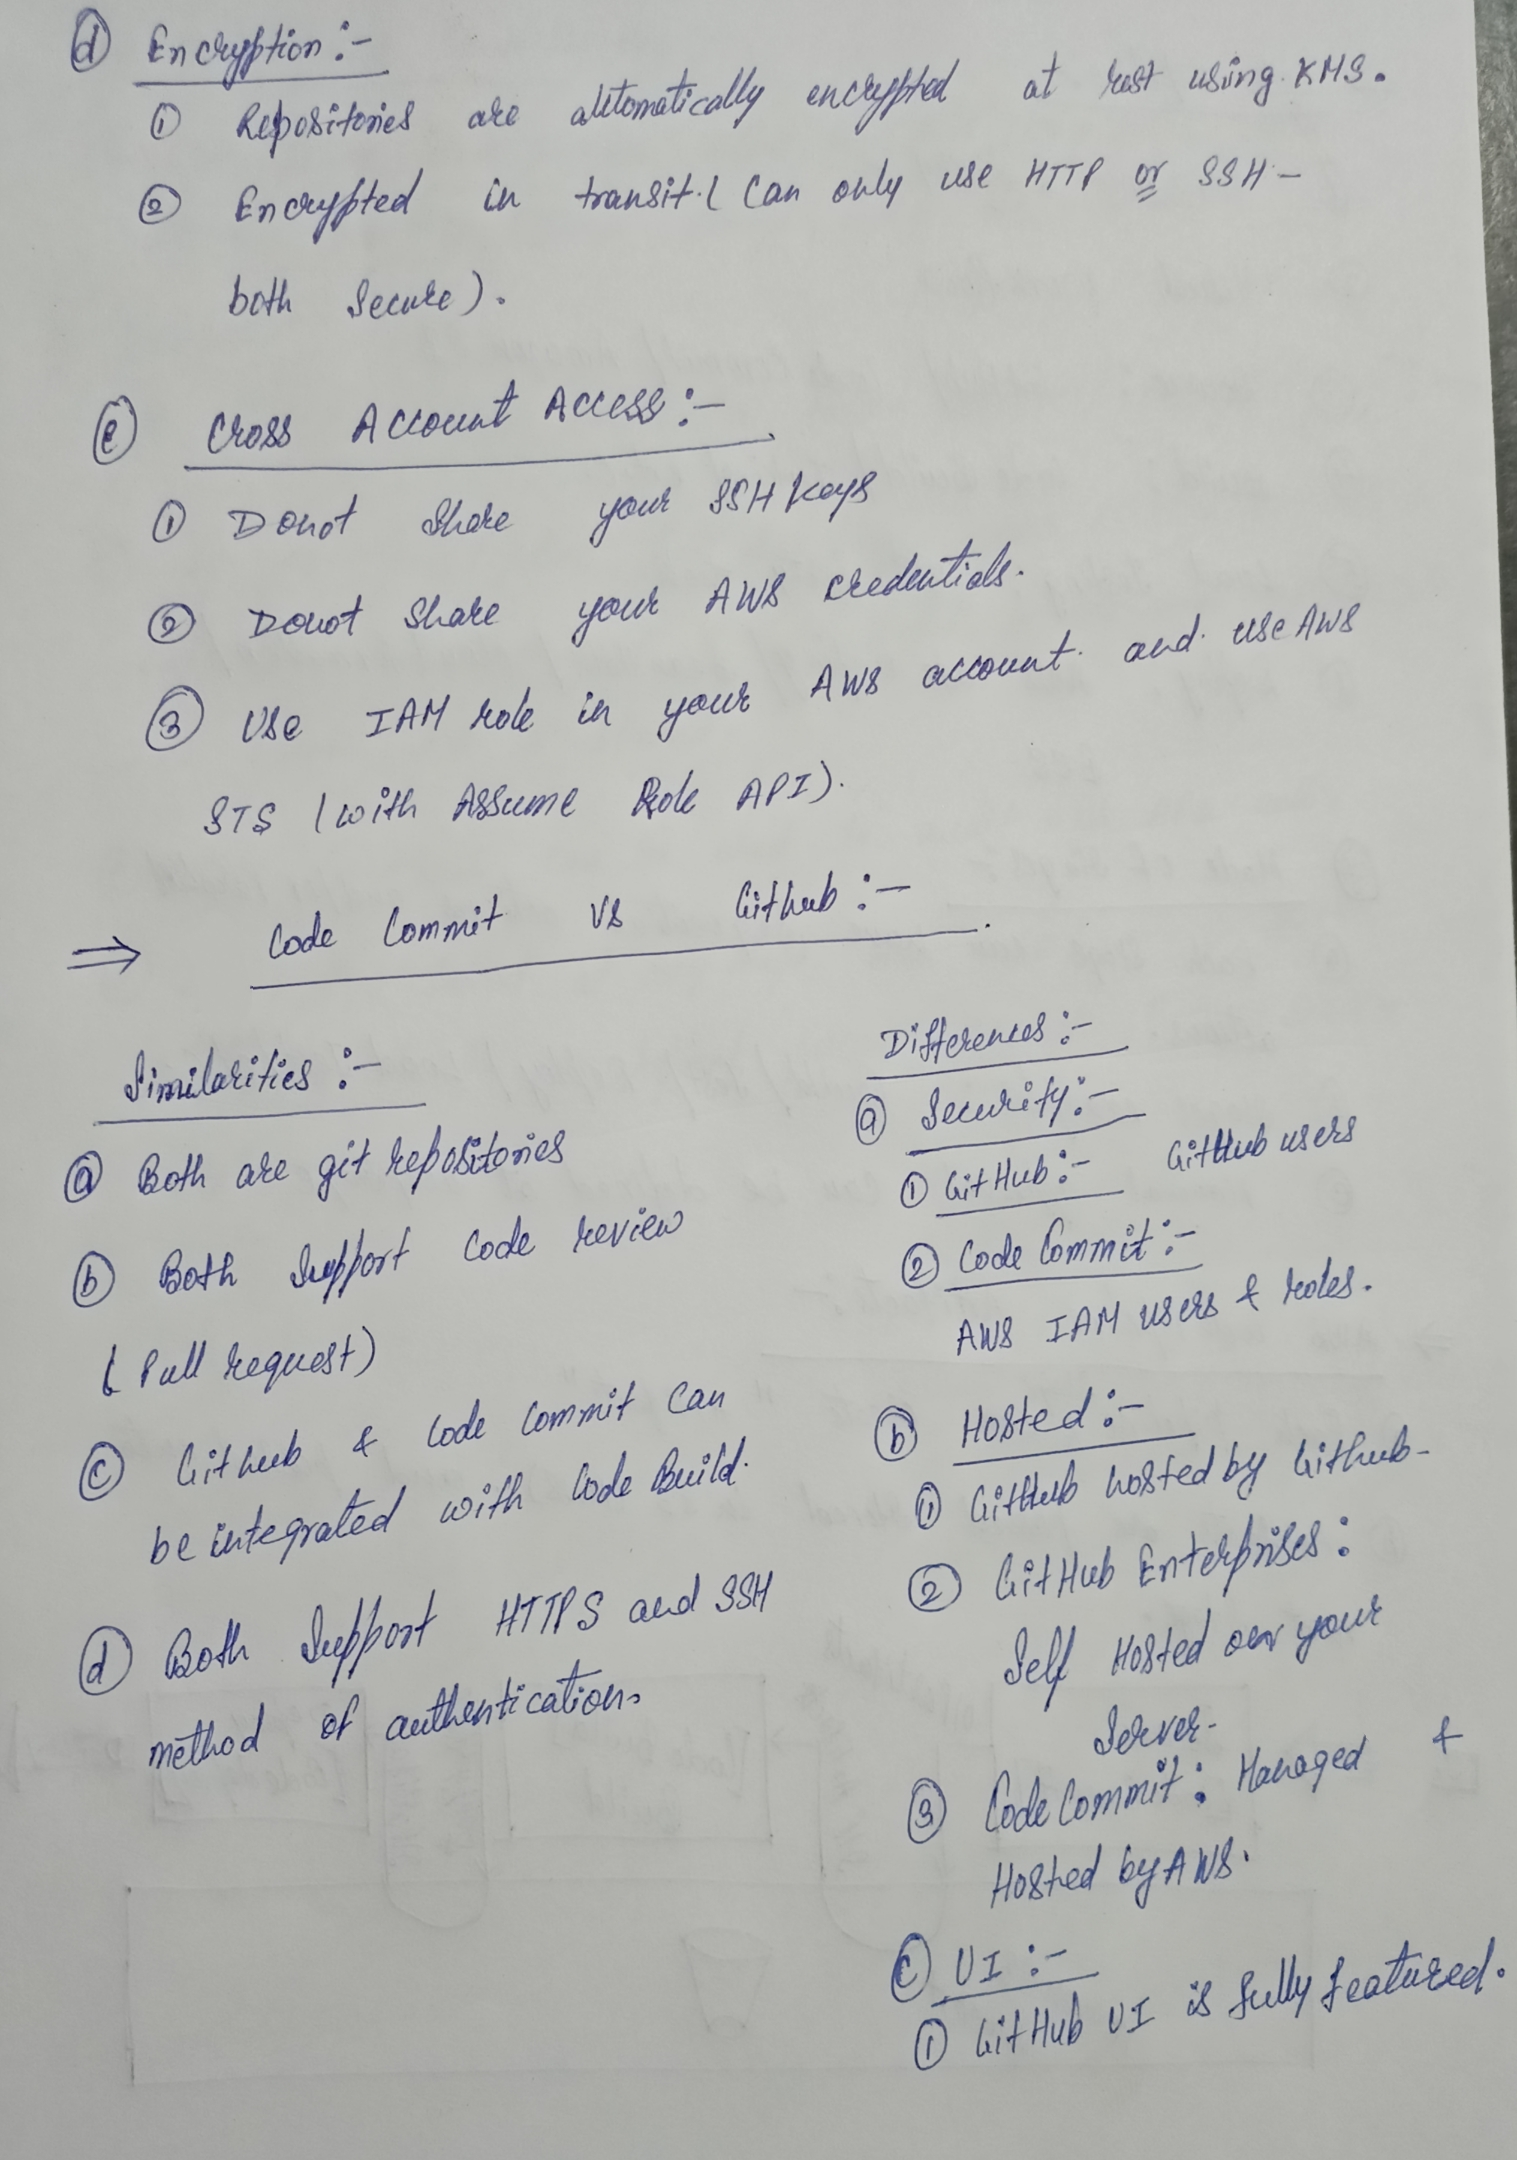 ⓓ Encryption :-
① Repositories are automatically encrypted at rest using KMS.
② Encrypted in transit. ( Can only use HTTP or SSH -
both secure).
ⓔ Cross Account Access :-
① Donot share your SSH Keys
② Donot share your AWS credentials.
③ Use IAM role in your AWS account and use AWS
STS (with Assume Role API).
⇒ Code Commit VS Github :-
Similarities :-
ⓐ Both are git repositories
ⓑ Both Support Code review
( Pull request)
ⓒ Github & Code Commit Can
be integrated with Code Build.
ⓓ Both Support HTTPS and SSH
method of authentication.
Differences :-
ⓐ Security :-
① GitHub :- GitHub users
② Code Commit :-
AWS IAM users & roles.
ⓑ Hosted :-
① GitHub hosted by Github-
② GitHub Enterprises :
Self Hosted our your
Server-
③ Code Commit : Managed &
Hosted by AWS.
ⓒ UI :-
① GitHub UI is fully featured.